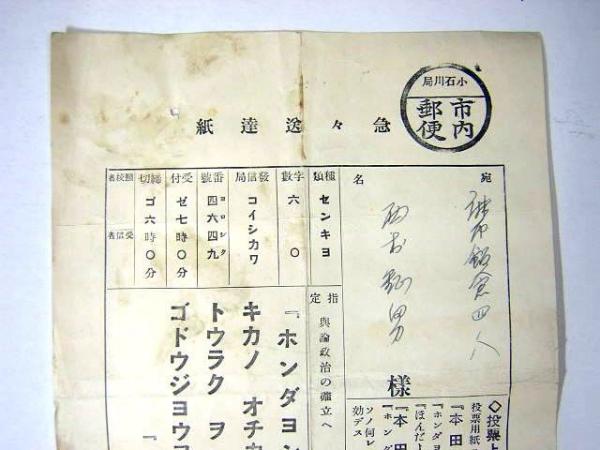 小石川局
市内
郵便
急々送達紙
宛
名
様
種類 センキヨ
數字 六〇
發信局 コイシカワ
番號 四六四九
ヨロシク
受付 ゼ七時〇分
締切 ゴ六時〇分
受信者
指定 輿論政治の確立へ
『ホンダヨシ
キカノ オチカ
トウラク ヲ
ゴドウジヨウヲ
◇投票上
投票用紙
『本田
『ホンダヨ
『ほんだ
『本田
『ホンダ
ソノ何レ
効デス